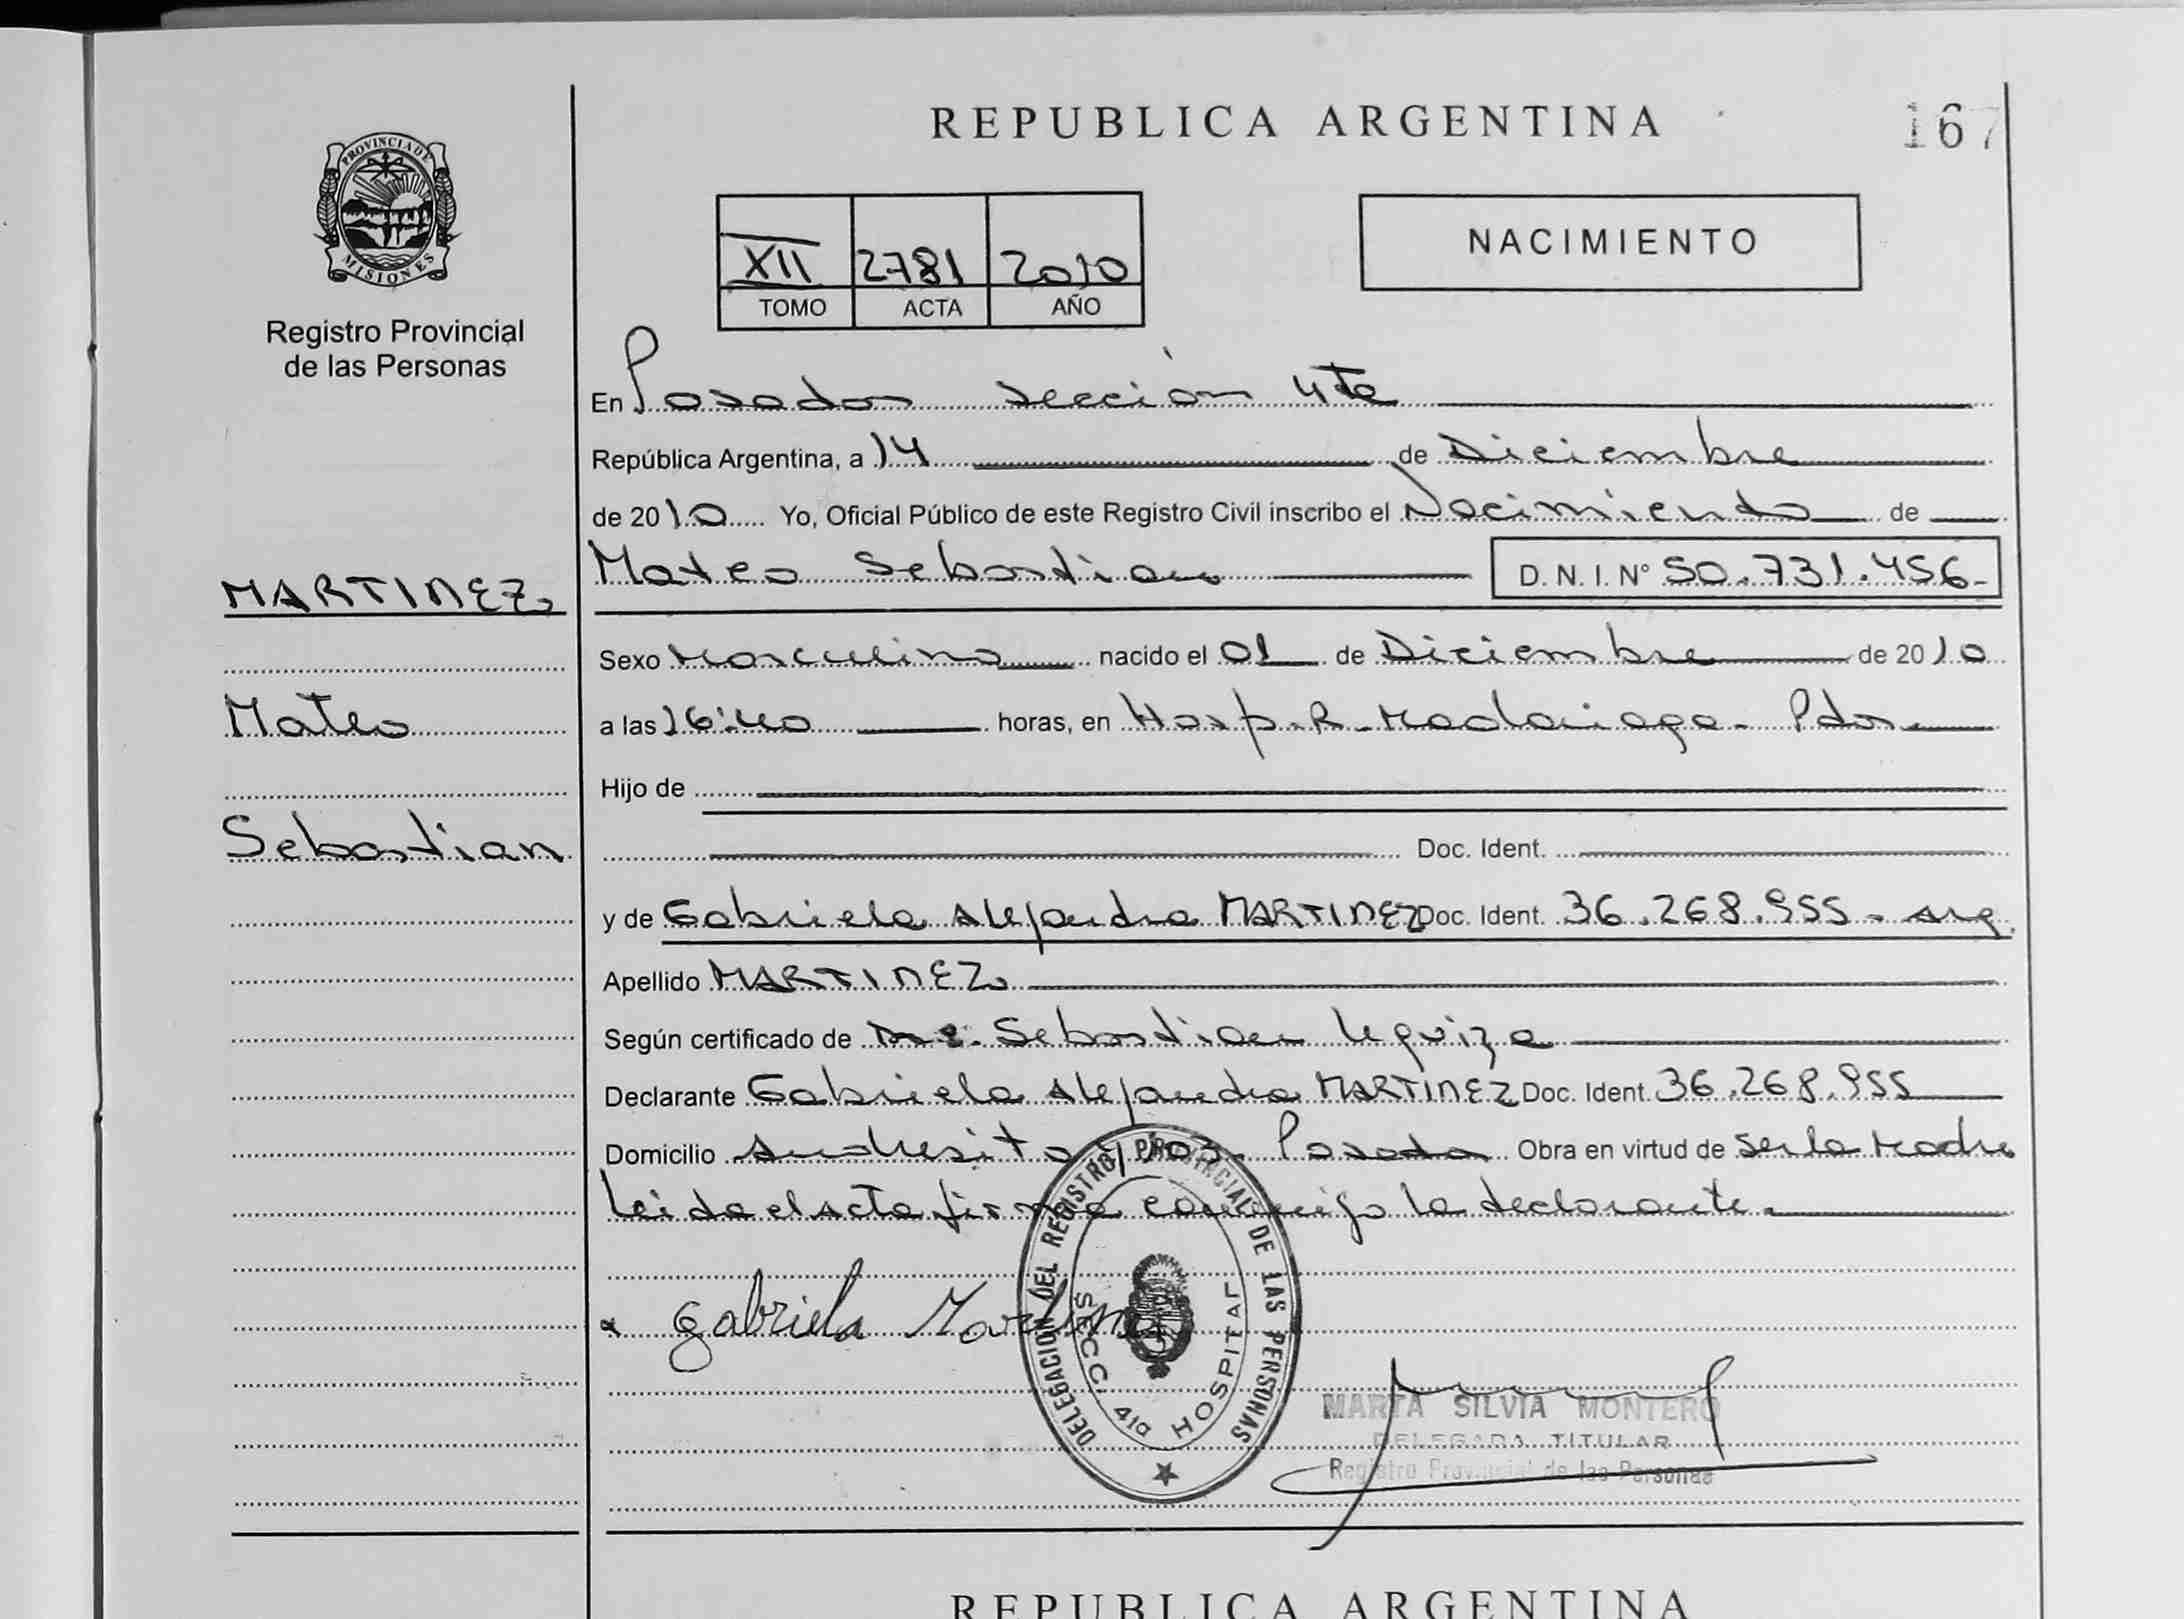 REPUBLICA ARGENTINA
167
PROVINCIA DE
MISIONES
Registro Provincial
de las Personas
XII 2781 2010
TOMO ACTA AÑO
NACIMIENTO
En Posadas sección 4ta
República Argentina, a 14 de Diciembre
de 2010 Yo, Oficial Público de este Registro Civil inscribo el Nacimiento de
MARTINEZ
Mateo
Sebastian
Mateo Sebastian D. N. I. Nº 50.731.456-
Sexo Masculino nacido el 01 de Diciembre de 2010
a las 16:40 horas, en Hosp. R. Madariaga - Pdas
Hijo de
Doc. Ident.
y de Gabriela Alejandra MARTINEZ Doc. Ident. 36.268.955 - Arg.
Apellido MARTINEZ
Según certificado de Sebastian
Declarante Gabriela Alejandra MARTINEZ Doc. Ident. 36.268.955
Domicilio Andresito Posadas Obra en virtud de ser la Madre
Leida el Acta firma conmigo la declarante.
Gabriela Martinez
DELEGACION DEL REGISTRO PROVINCIAL DE LAS PERSONAS
SECC. 41a HOSPITAL
MARTA SILVIA MONTERO
DELEGADA TITULAR
Registro Provincial de las Personas
REPUBLICA ARGENTINA